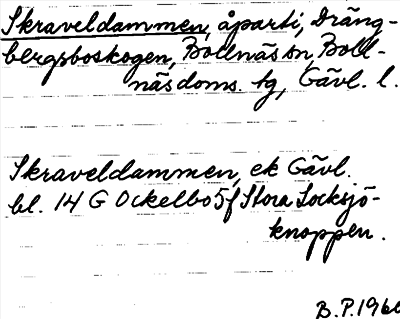 Skraveldammen, åparti, Dräng-
bergsboskogen, Bollnäs sn, Boll-
näs doms. tg, Gävl. l.
Skraveldammen, ek Gävl.
bl. 14 G Ockelbo 5f Stora Locksjö-
knoppen.
B.P. 1960